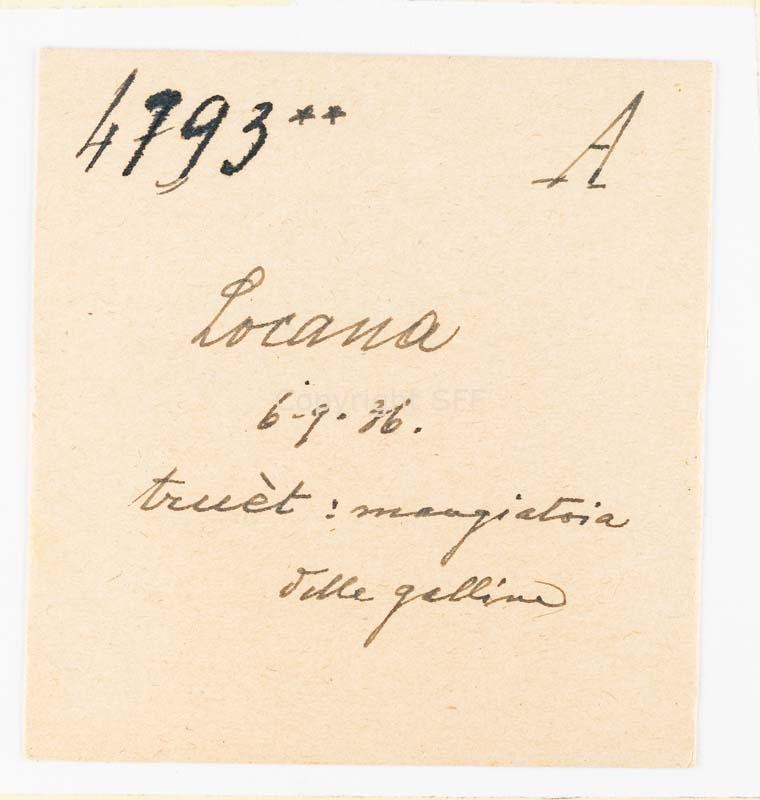 4793** A
Locana
6-9-36.
truèt : mangiatoia
delle galline
Copyright SFF